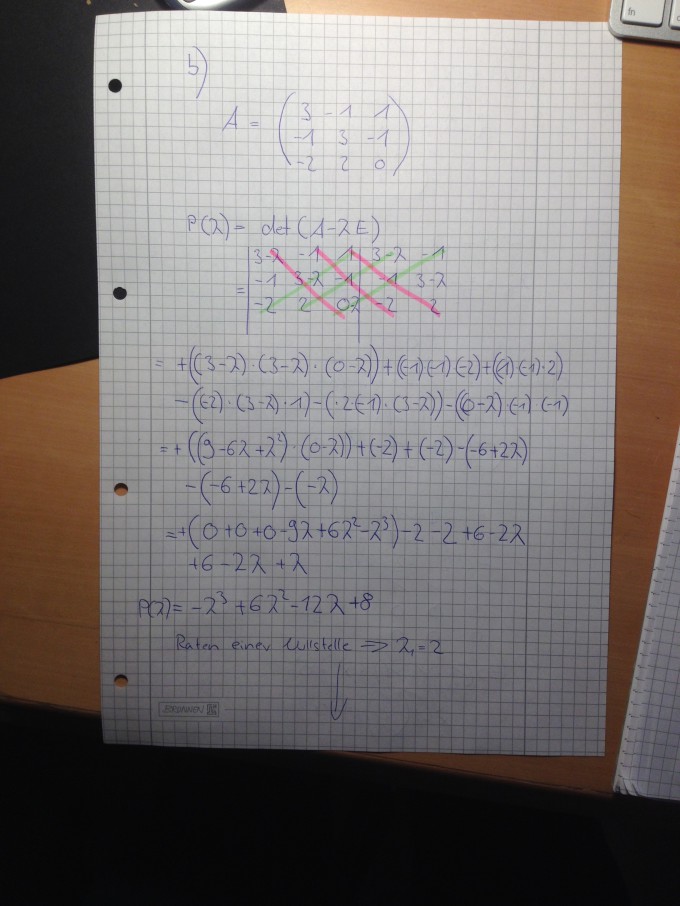 b)
A = ( 3 -1 1
-1 3 -1
-2 2 0 )
P(λ) = det(A-λE)
3-λ -1 1 3-λ -1
= -1 3-λ -1 -1 3-λ
-2 2 0-λ -2 2
= +((3-λ)·(3-λ)·(0-λ))+((-1)(-1)(-2)+((1)(-1)·2)
-((-2)·(3-λ)·1)-(·2(-1)·(3-λ))-((0-λ)·(-1)·(-1)
=+((9-6λ+λ²)·(0-λ))+(-2)+(-2)-(-6+2λ)
-(-6+2λ)-(-λ)
=+(0+0+0-9λ+6λ²-λ³)-2-2+6-2λ
+6-2λ+λ
P(λ)= -λ³+6λ²-12λ+8
Raten einer Nullstelle => λ₁=2
BRUNNEN
fn